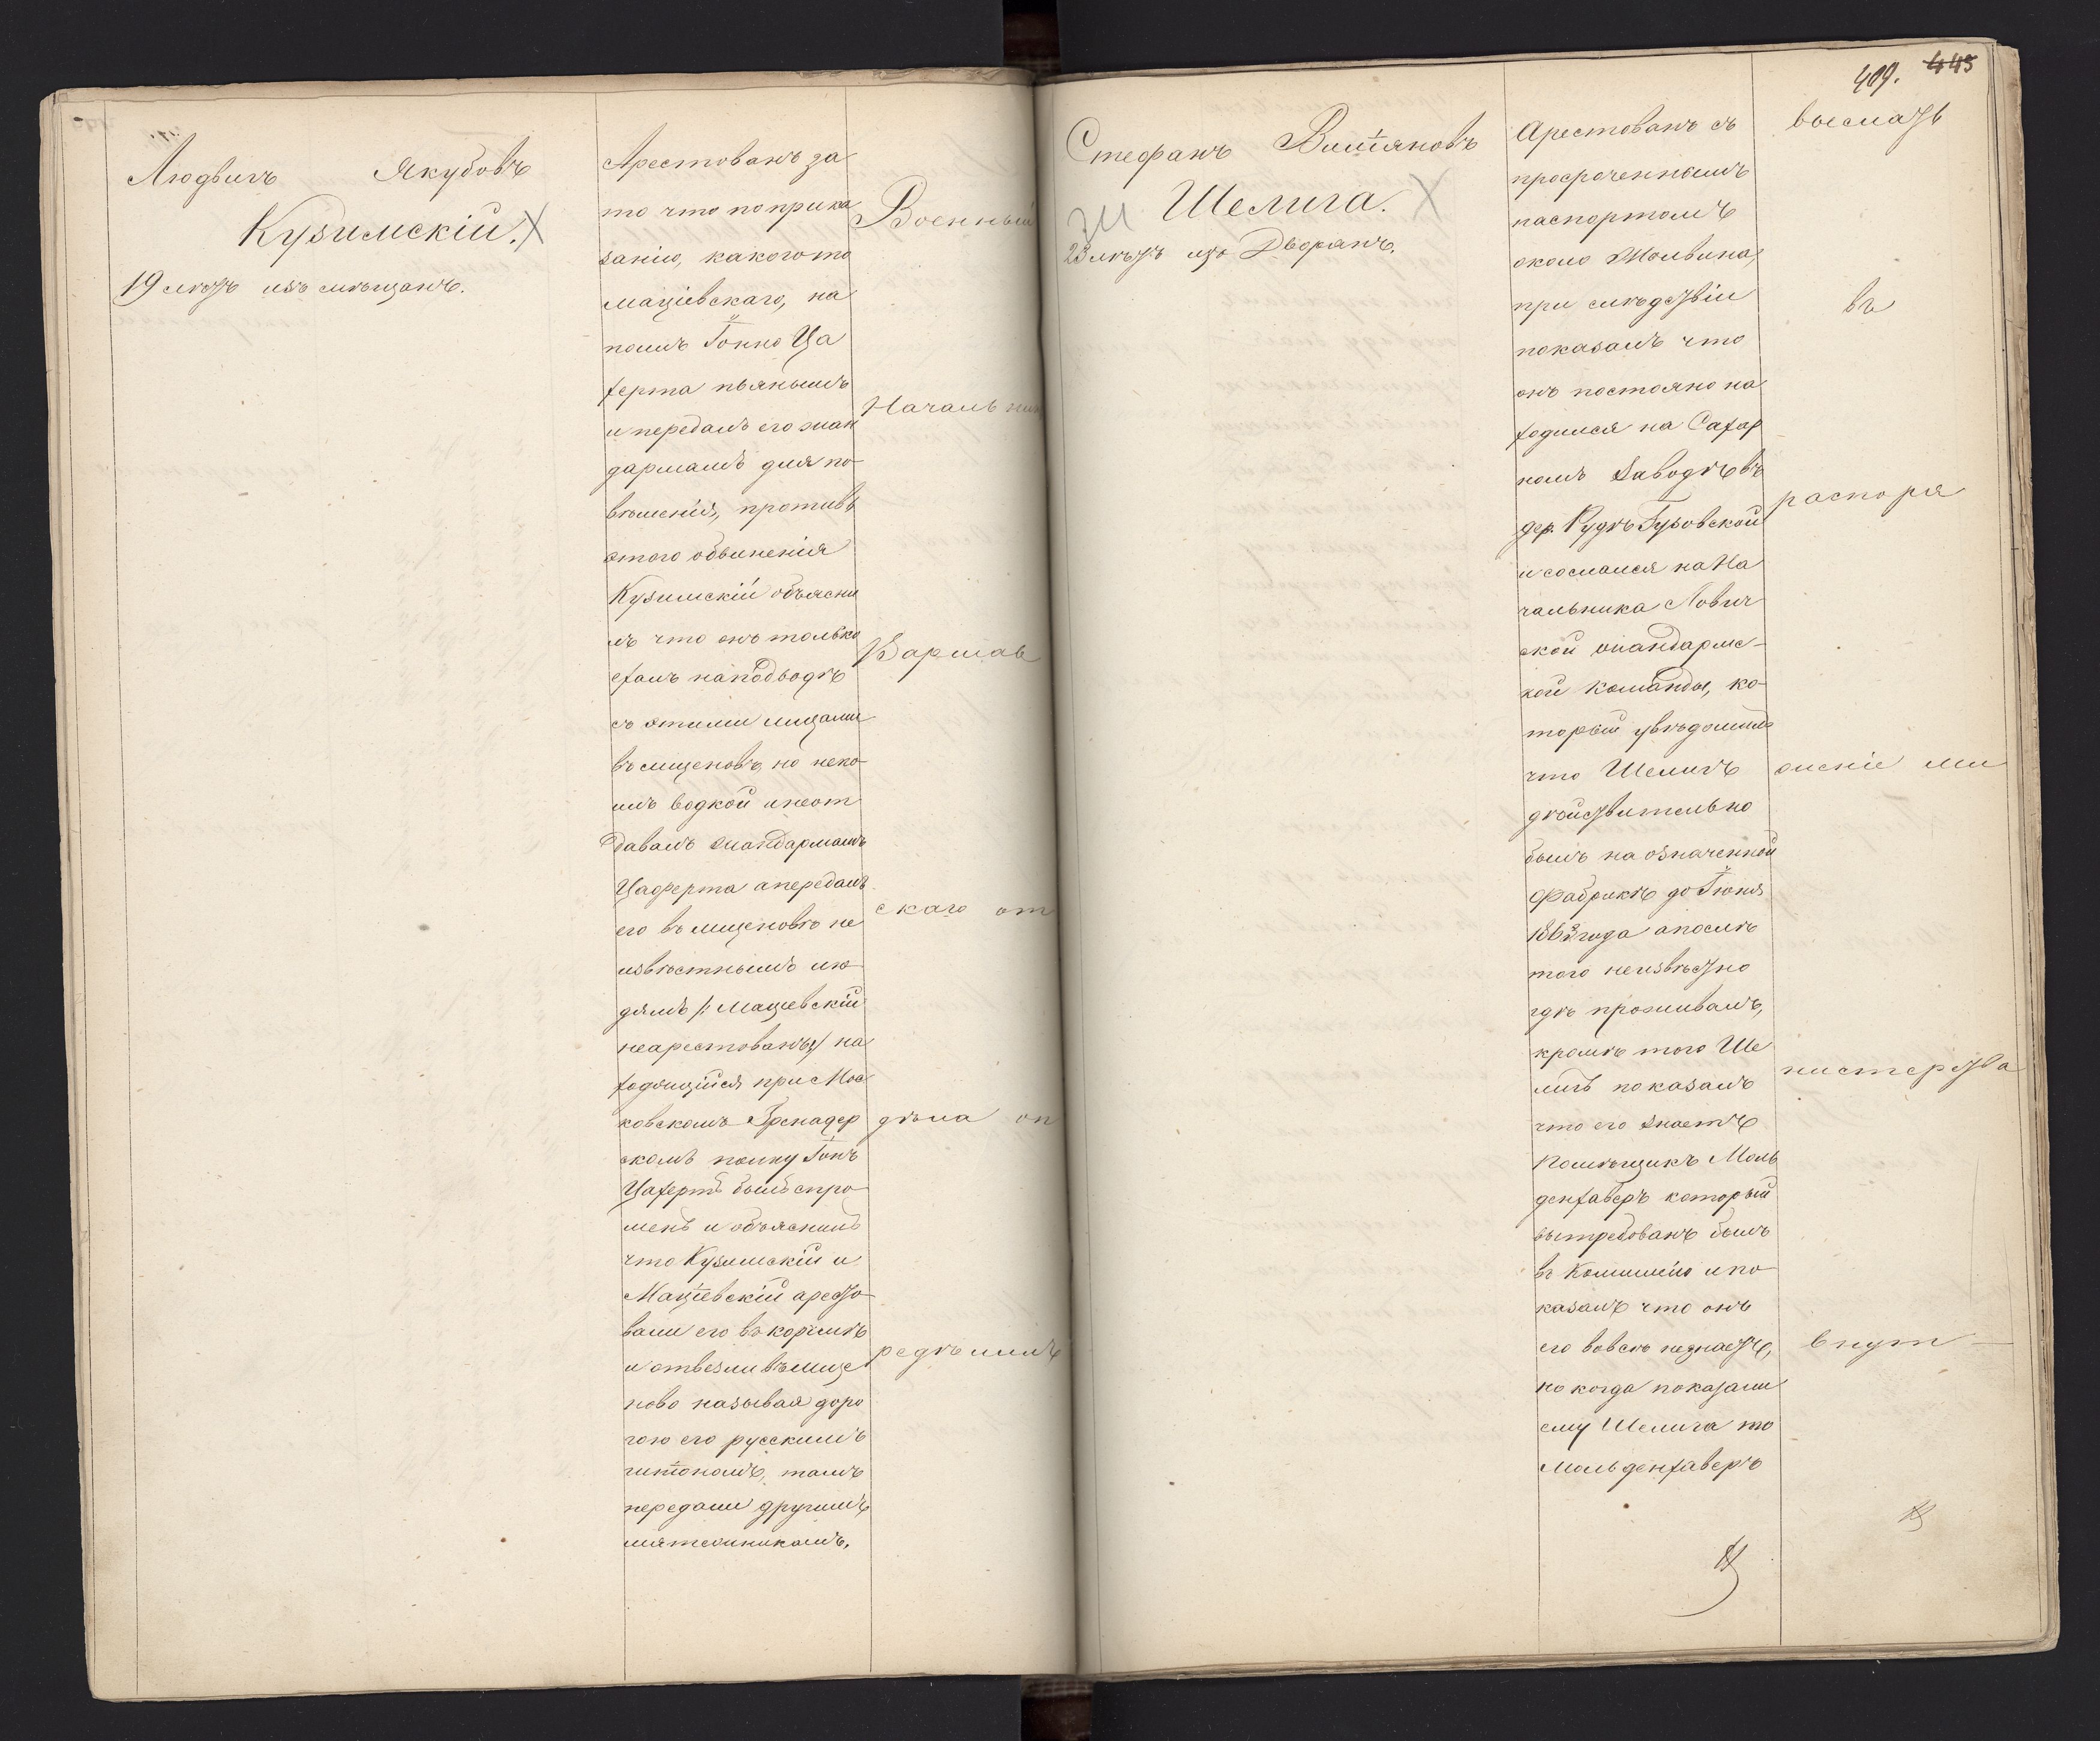 Людвигъ Якубовъ
Кузимскій. X
19 лѣтъ изъ мѣщанъ.
Арестованъ за
то что по прика
занію, какого то
Маціевскаго, на
поилъ Іонно Ца
херта пьянымъ
и передалъ его жан
дармамъ для по-
вѣшенія, противъ
этого обвиненія
Кузимскій объясни
лъ что онъ только
ехалъ на подводѣ
съ этими лицами
но непо-
илъ водкой и неот
давалъ жандармамъ
Цахерта а передалъ
его въ Мщеновѣ не
извѣстнымъ лю-
дямъ /: Мацiевскій
неарестованъ :/ на
ходящійся при Мос
ковскомъ Гренадер
скомъ полку Іонъ
Цахертъ былъ спро
шенъ и объяснилъ
что Кузимскій и
Маціевскій аресто-
вали его въ корчмѣ
и отвезли въ Мще
ново называя доро
гою его русскимъ
шпіономъ, тамъ
передали другимъ
мятежникамъ.
Военный
Начальник
Варшав
скаго от
дѣла оп
редѣлилъ
409. 445
Стефанъ Вишіяновъ
Шелига. X
23 лѣтъ изъ Дворянъ.
Арестованъ съ
просроченнымъ
паспортомъ
около Жолвина,
при слѣдствіи
показалъ что
онъ постояно на
ходился на Сахар
номъ Заводѣ въ
дер. Рудѣ Гузовской
и сослался на На
чальника Лович
ской жандармс-
кой команды, ко-
торый увѣдомилъ
что Шелигъ
дѣйствительно
былъ на означенной
Фабрикѣ до Іюня
1863 года а послѣ
того неизвѣстно
гдѣ проживалъ,
кромѣ того Ше
лигъ показалъ
что его знаетъ
Помѣщикъ Моль
денхаверъ который
вытребованъ былъ
въ Комисію и по
казалъ что онъ
его вовсѣ незнаетъ,
но когда показали
ему Шелига то
Мольденхаверъ
выслать
въ
распоря
женіе Ми
нистерства
Внут-